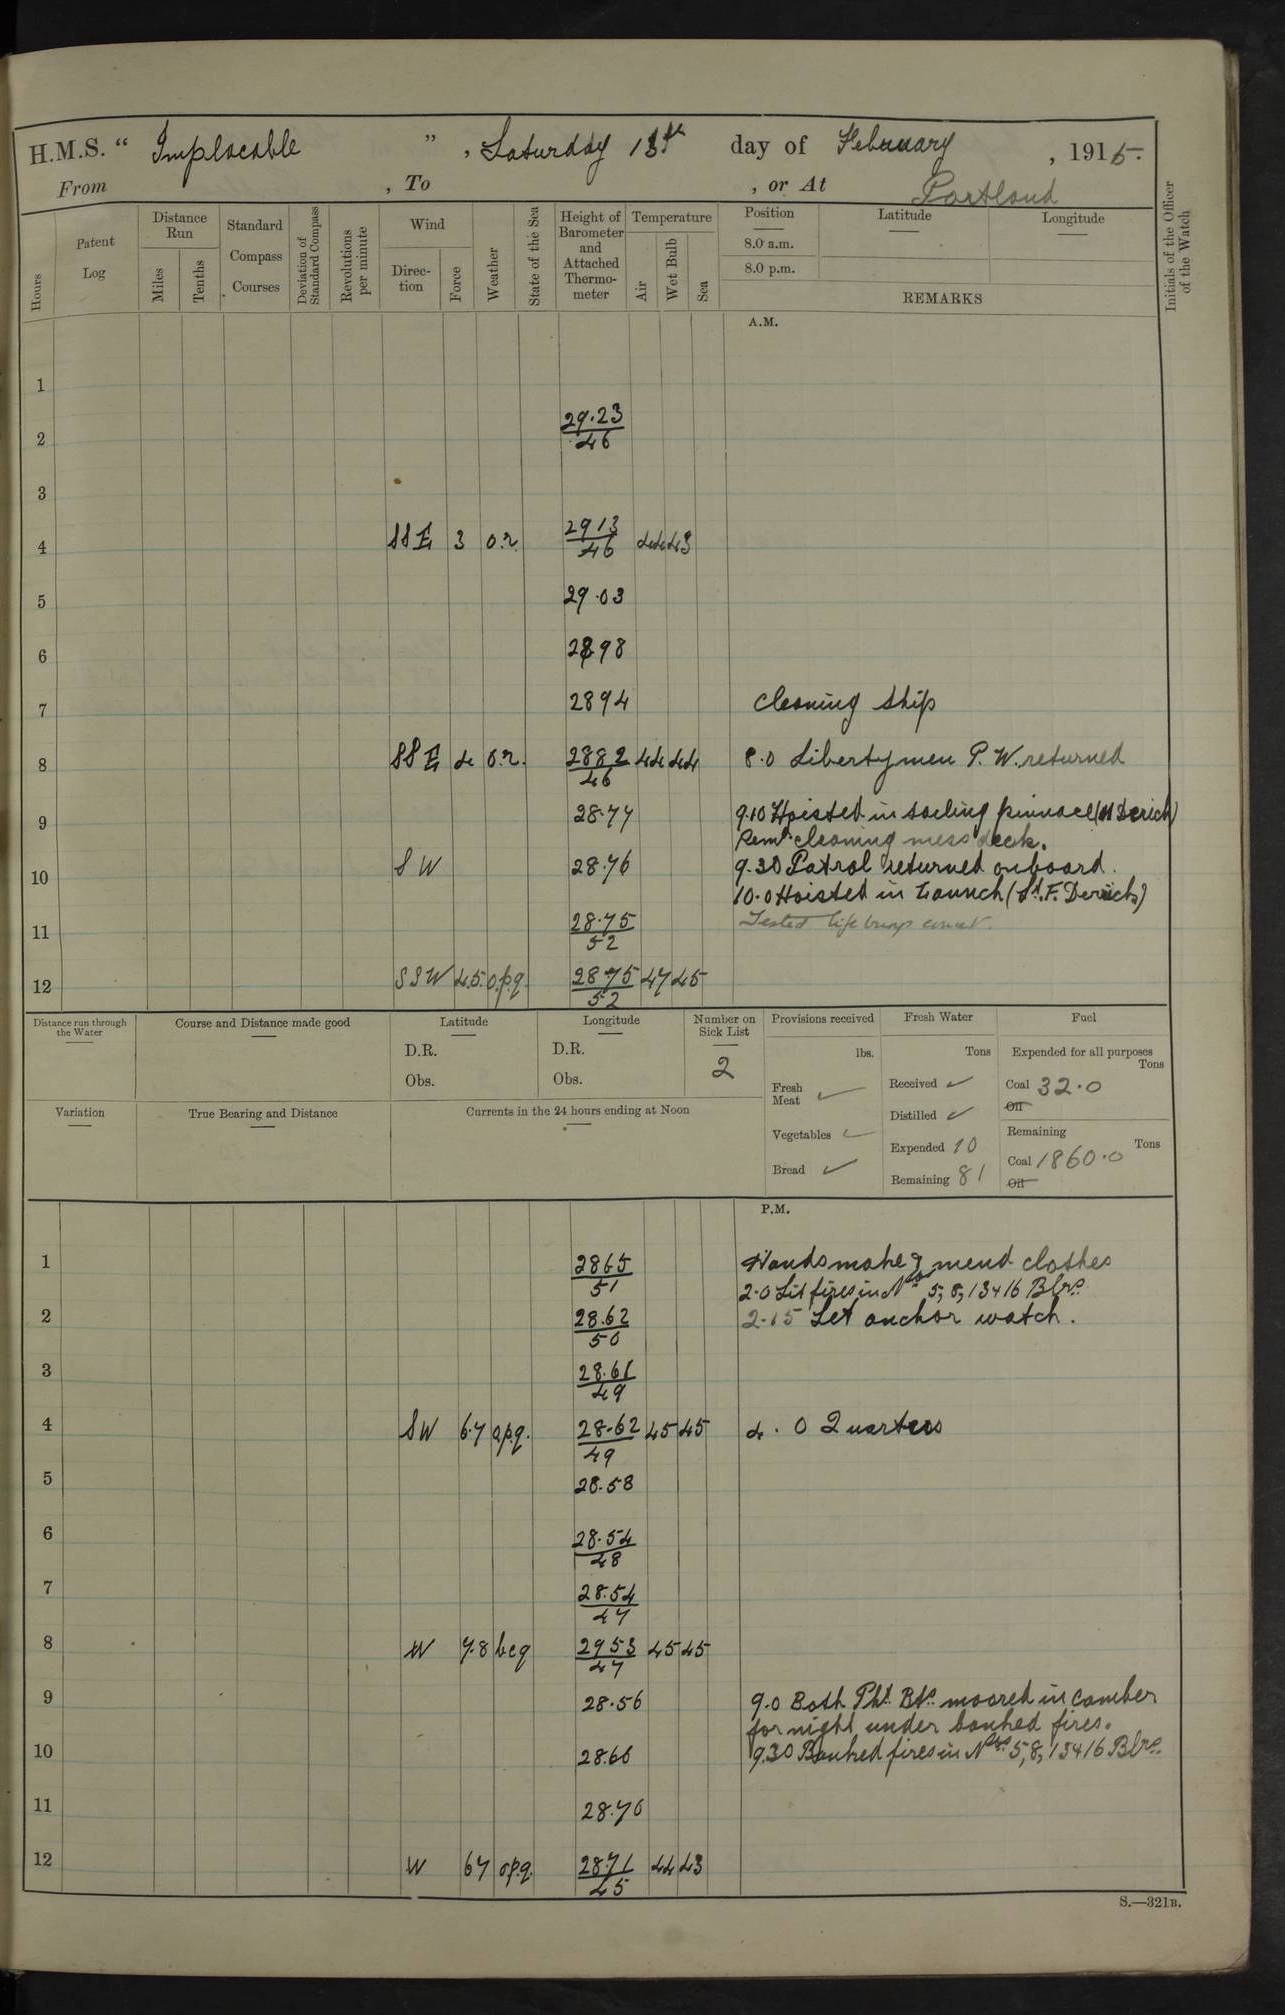 H.M.S. “ Implacable ”, Saturday 13th day of February, 1915.
From , To , or At Portland
Hours
Patent Log
Distance Run
Miles
Tenths
Standard Compass Courses
Deviation of Standard Compass
Revolutions per minute
Wind
Direction
Force
Weather
State of the Sea
Height of Barometer and Attached Thermometer
Temperature
Air
Wet Bulb
Sea
Position
8.0 a.m.
8.0 p.m.
Latitude
Longitude
REMARKS
Initials of the Officer of the Watch
A.M.
1
2 29.23/46
3
4 SSE 3 o.r. 2913/46 44 43
5 29.03
6 2898
7 2894 Cleaning Ship
8 SSE 4 o.r. 2882/46 44 44 8.0 Libertymen P.W. returned
9 28.77 9.10 Hoisted in sailing pinnace (M Derick)
Remr cleaning mess deck.
10 SW 28.76 9.30 Patrol returned onboard.
10.0 Hoisted in Launch (St. F. Derrick)
11 28.75/52 Tested life buoys correct.
12 SSW 4.5 o.p.q. 2875/52 47 45
Distance run through the Water
Course and Distance made good
Latitude
D.R.
Obs.
Longitude
D.R.
Obs.
Number on Sick List
2
Provisions received
lbs.
Fresh Meat ✓
Vegetables ✓
Bread ✓
Fresh Water
Tons
Received ✓
Distilled ✓
Expended 10
Remaining 81
Fuel
Expended for all purposes
Tons
Coal 32.0
Oil
Remaining
Tons
Coal 1860.0
Oil
Variation
True Bearing and Distance
Currents in the 24 hours ending at Noon
P.M.
1 2865/51 Hands make & mend clothes
2.0 Lit fires in Nos 5, 8, 13 & 16 Blrs.
2 28.62/50 2.15 Set anchor watch.
3 28.61/49
4 SW 6.7 o.p.q. 28.62/49 45 45 4.0 Quarters
5 28.58
6 28.54/48
7 28.54/47
8 W 7.8 bcq 2953/47 45 45
9 28.56 9.0 Both Pkt. Bts. moored in camber
for night under banked fires.
10 28.66 9.30 Banked fires in Nos 5, 8, 13 & 16 Blrs.
11 28.70
12 W 67 o.p.q. 28.71/45 44 43
S.—321B.